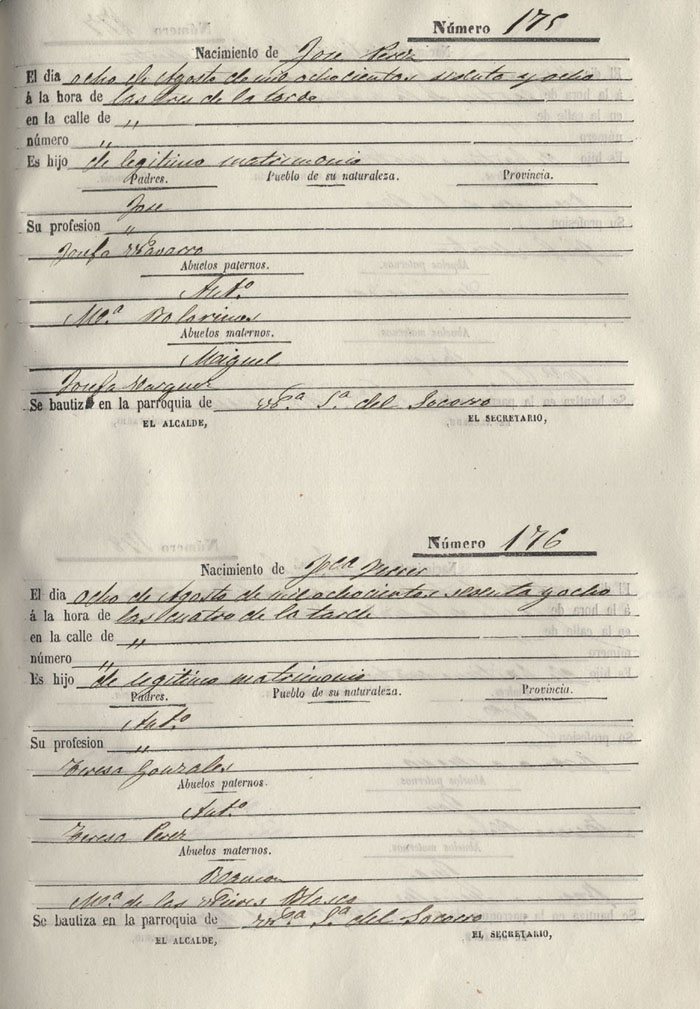 Número 175
Nacimiento de Jose Perez
El dia ocho de Agosto de mil ochocientos sesenta y ocho
á la hora de las tres de la tarde
en la calle de "
número "
Es hijo de legitimo matrimonio
Padres. Pueblo de su naturaleza. Provincia.
Jose
Su profesion "
Josefa Navarro
Abuelos paternos.
Ant.º
M.ª
Abuelos maternos.
Miguel
Josefa
Se bautiza en la parroquia de Ntr.ª S.ª del Socorro
EL ALCALDE, EL SECRETARIO,
Número 176
Nacimiento de
El dia ocho de Agosto de mil ochocientos sesenta y ocho
á la hora de las cuatro de la tarde
en la calle de "
número "
Es hijo de legitimo matrimonio
Padres. Pueblo de su naturaleza. Provincia.
Ant.º
Su profesion "
Teresa Gonzales
Abuelos paternos.
Ant.º
Teresa Perez
Abuelos maternos.
Ramon
M.ª de las Nieves Blasco
Se bautiza en la parroquia de Ntr.ª S.ª del Socorro
EL ALCALDE, EL SECRETARIO,